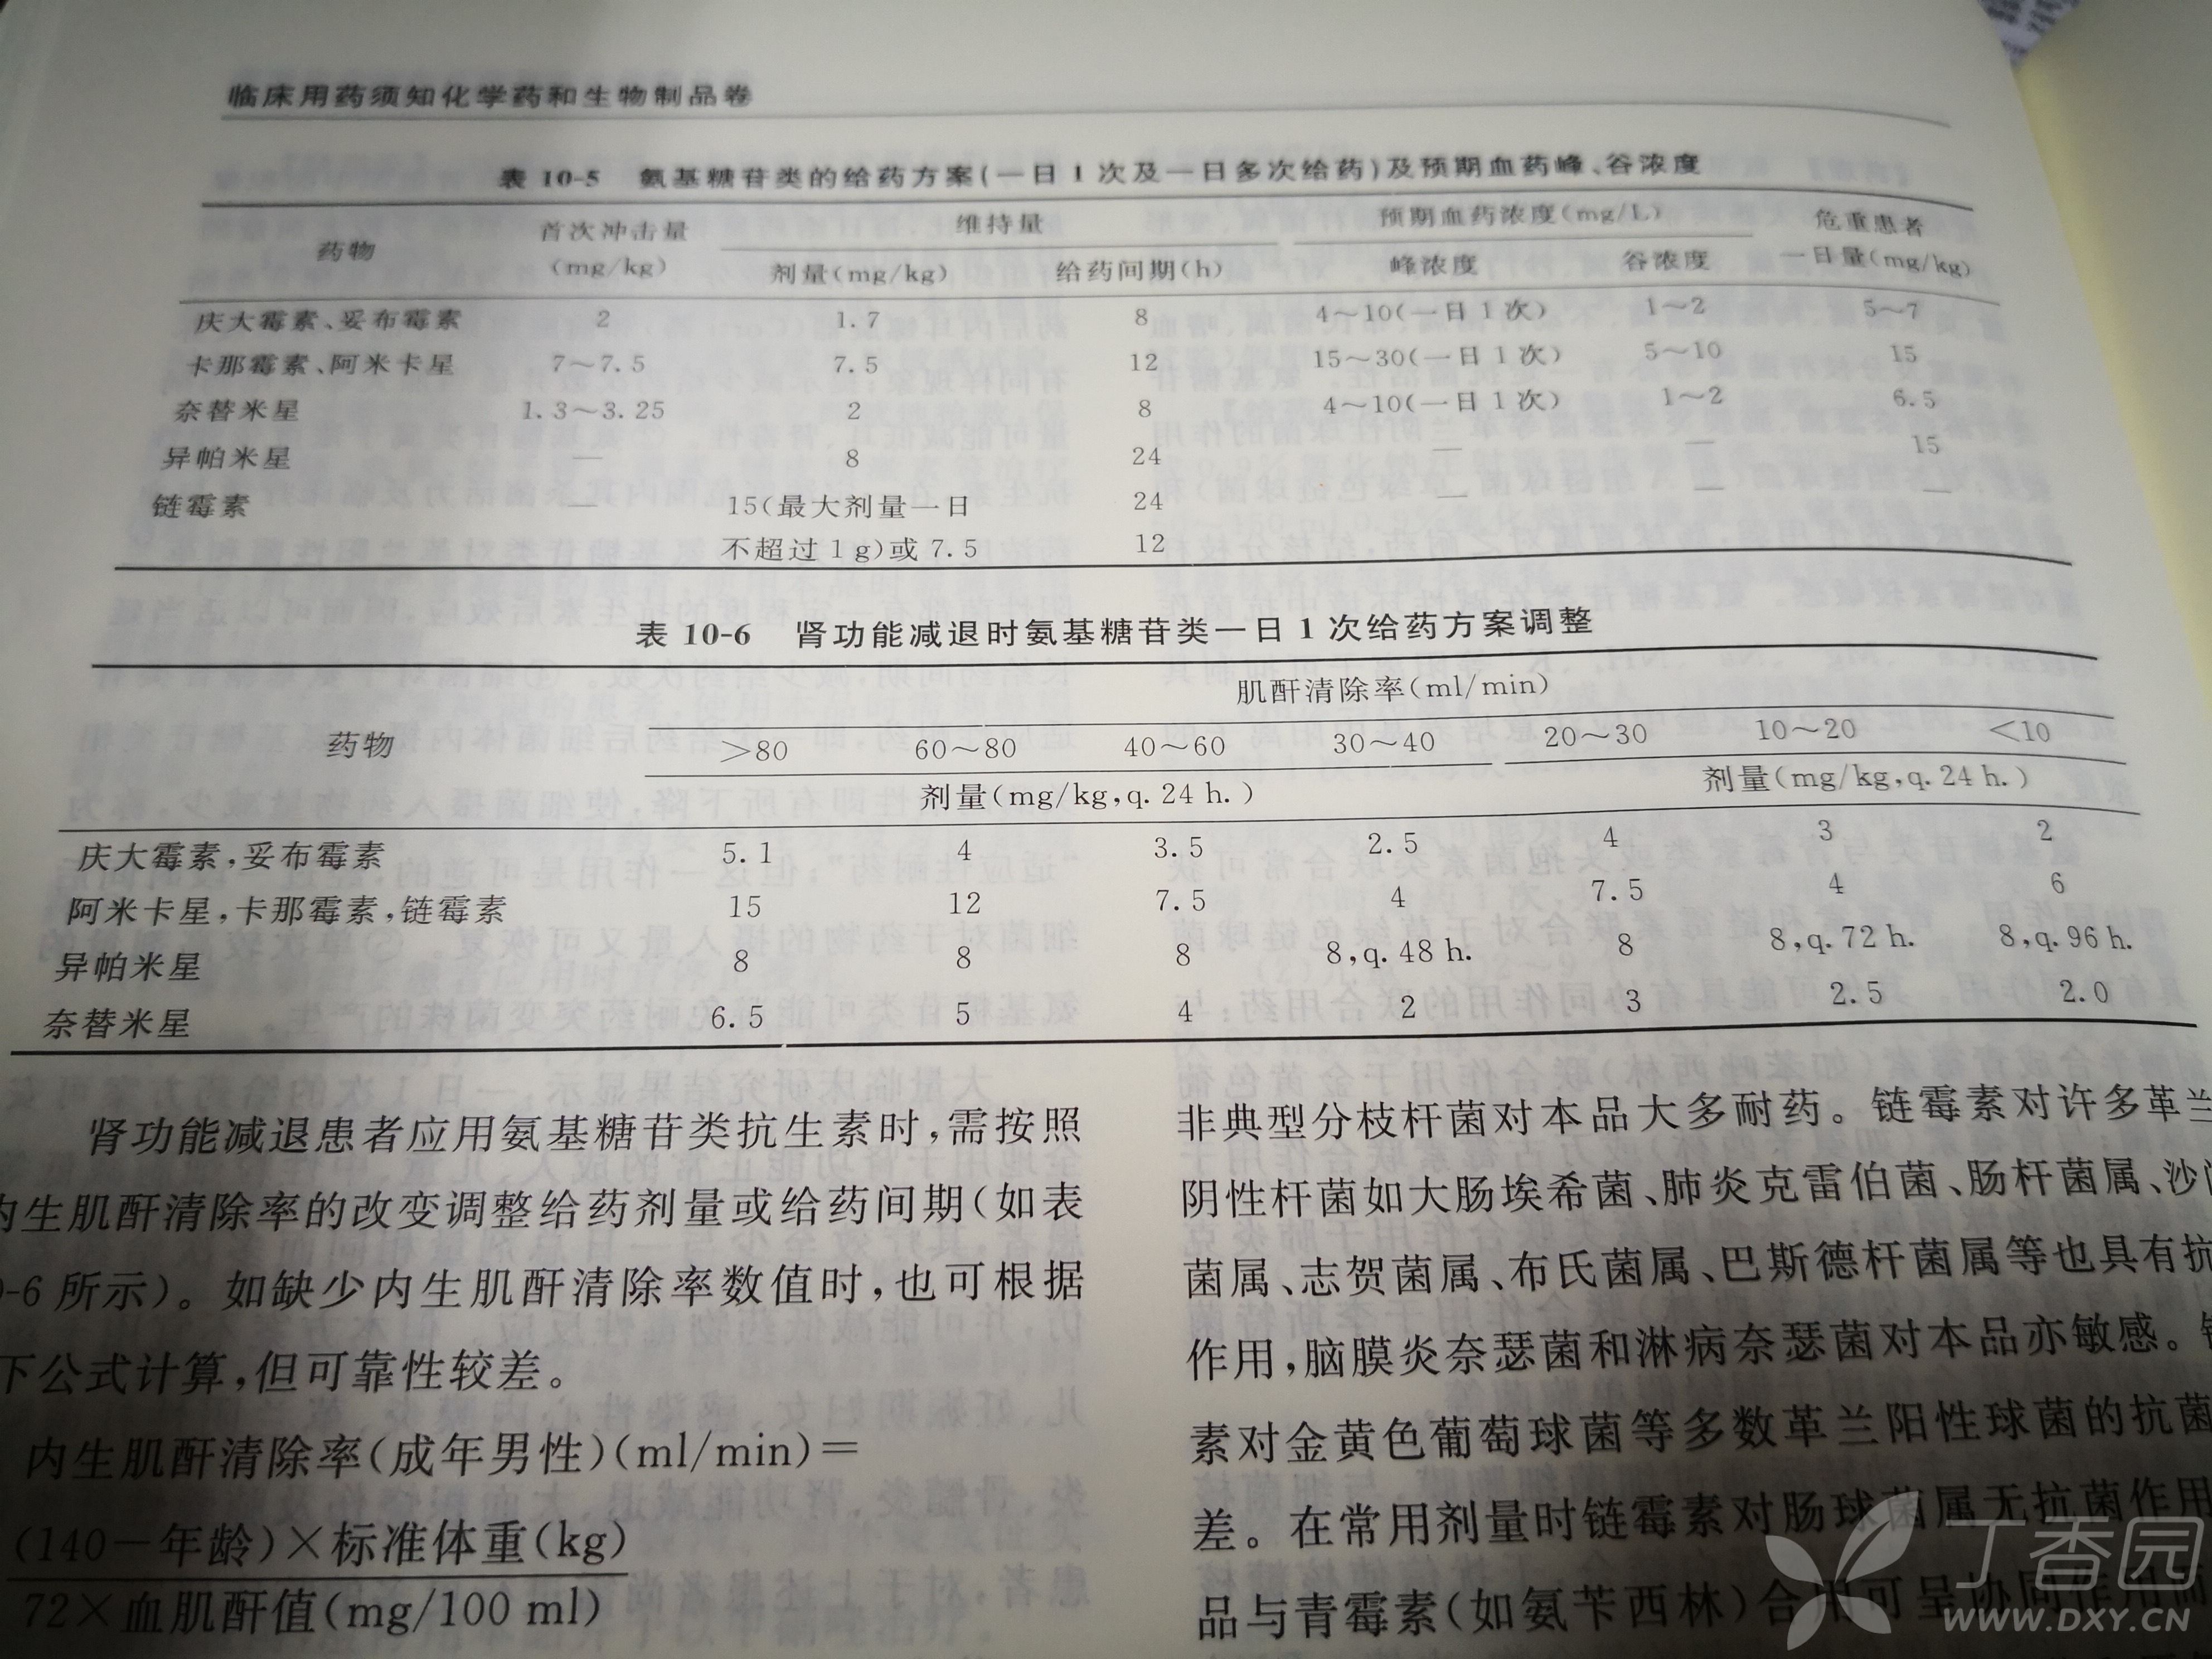 临床用药须知化学药和生物制品卷
表 10-5 氨基糖苷类的给药方案(一日 1 次及一日多次给药)及预期血药峰、谷浓度
药物 首次冲击量 维持量 预期血药浓度(mg/L) 危重患者
(mg/kg) 剂量(mg/kg) 给药间期(h) 峰浓度 谷浓度 一日量(mg/kg)
庆大霉素、妥布霉素 2 1.7 8 4～10(一日 1 次) 1～2 5～7
卡那霉素、阿米卡星 7～7.5 7.5 12 15～30(一日 1 次) 5～10 15
奈替米星 1.3～3.25 2 8 4～10(一日 1 次) 1～2 6.5
异帕米星 — 8 24 — — 15
链霉素 — 15(最大剂量一日 24 — — —
不超过 1 g)或 7.5 12
表 10-6 肾功能减退时氨基糖苷类一日 1 次给药方案调整
药物 肌酐清除率(ml/min)
>80 60～80 40～60 30～40 20～30 10～20 <10
剂量(mg/kg,q. 24 h.) 剂量(mg/kg,q. 24 h.)
庆大霉素,妥布霉素 5.1 4 3.5 2.5 4 3 2
阿米卡星,卡那霉素,链霉素 15 12 7.5 4 7.5 4 6
异帕米星 8 8 8 8,q. 48 h. 8 8,q. 72 h. 8,q. 96 h.
奈替米星 6.5 5 4 2 3 2.5 2.0
肾功能减退患者应用氨基糖苷类抗生素时,需按照
内生肌酐清除率的改变调整给药剂量或给药间期(如表
-6 所示)。如缺少内生肌酐清除率数值时,也可根据
下公式计算,但可靠性较差。
内生肌酐清除率(成年男性)(ml/min)=
(140－年龄)×标准体重(kg)
72×血肌酐值(mg/100 ml)
非典型分枝杆菌对本品大多耐药。链霉素对许多革兰
阴性杆菌如大肠埃希菌、肺炎克雷伯菌、肠杆菌属、沙
菌属、志贺菌属、布氏菌属、巴斯德杆菌属等也具有抗
作用,脑膜炎奈瑟菌和淋病奈瑟菌对本品亦敏感。
素对金黄色葡萄球菌等多数革兰阳性球菌的抗菌
差。在常用剂量时链霉素对肠球菌属无抗菌作用
品与青霉素(如氨苄西林)合用可呈协同作用
丁香园
WWW.DXY.CN